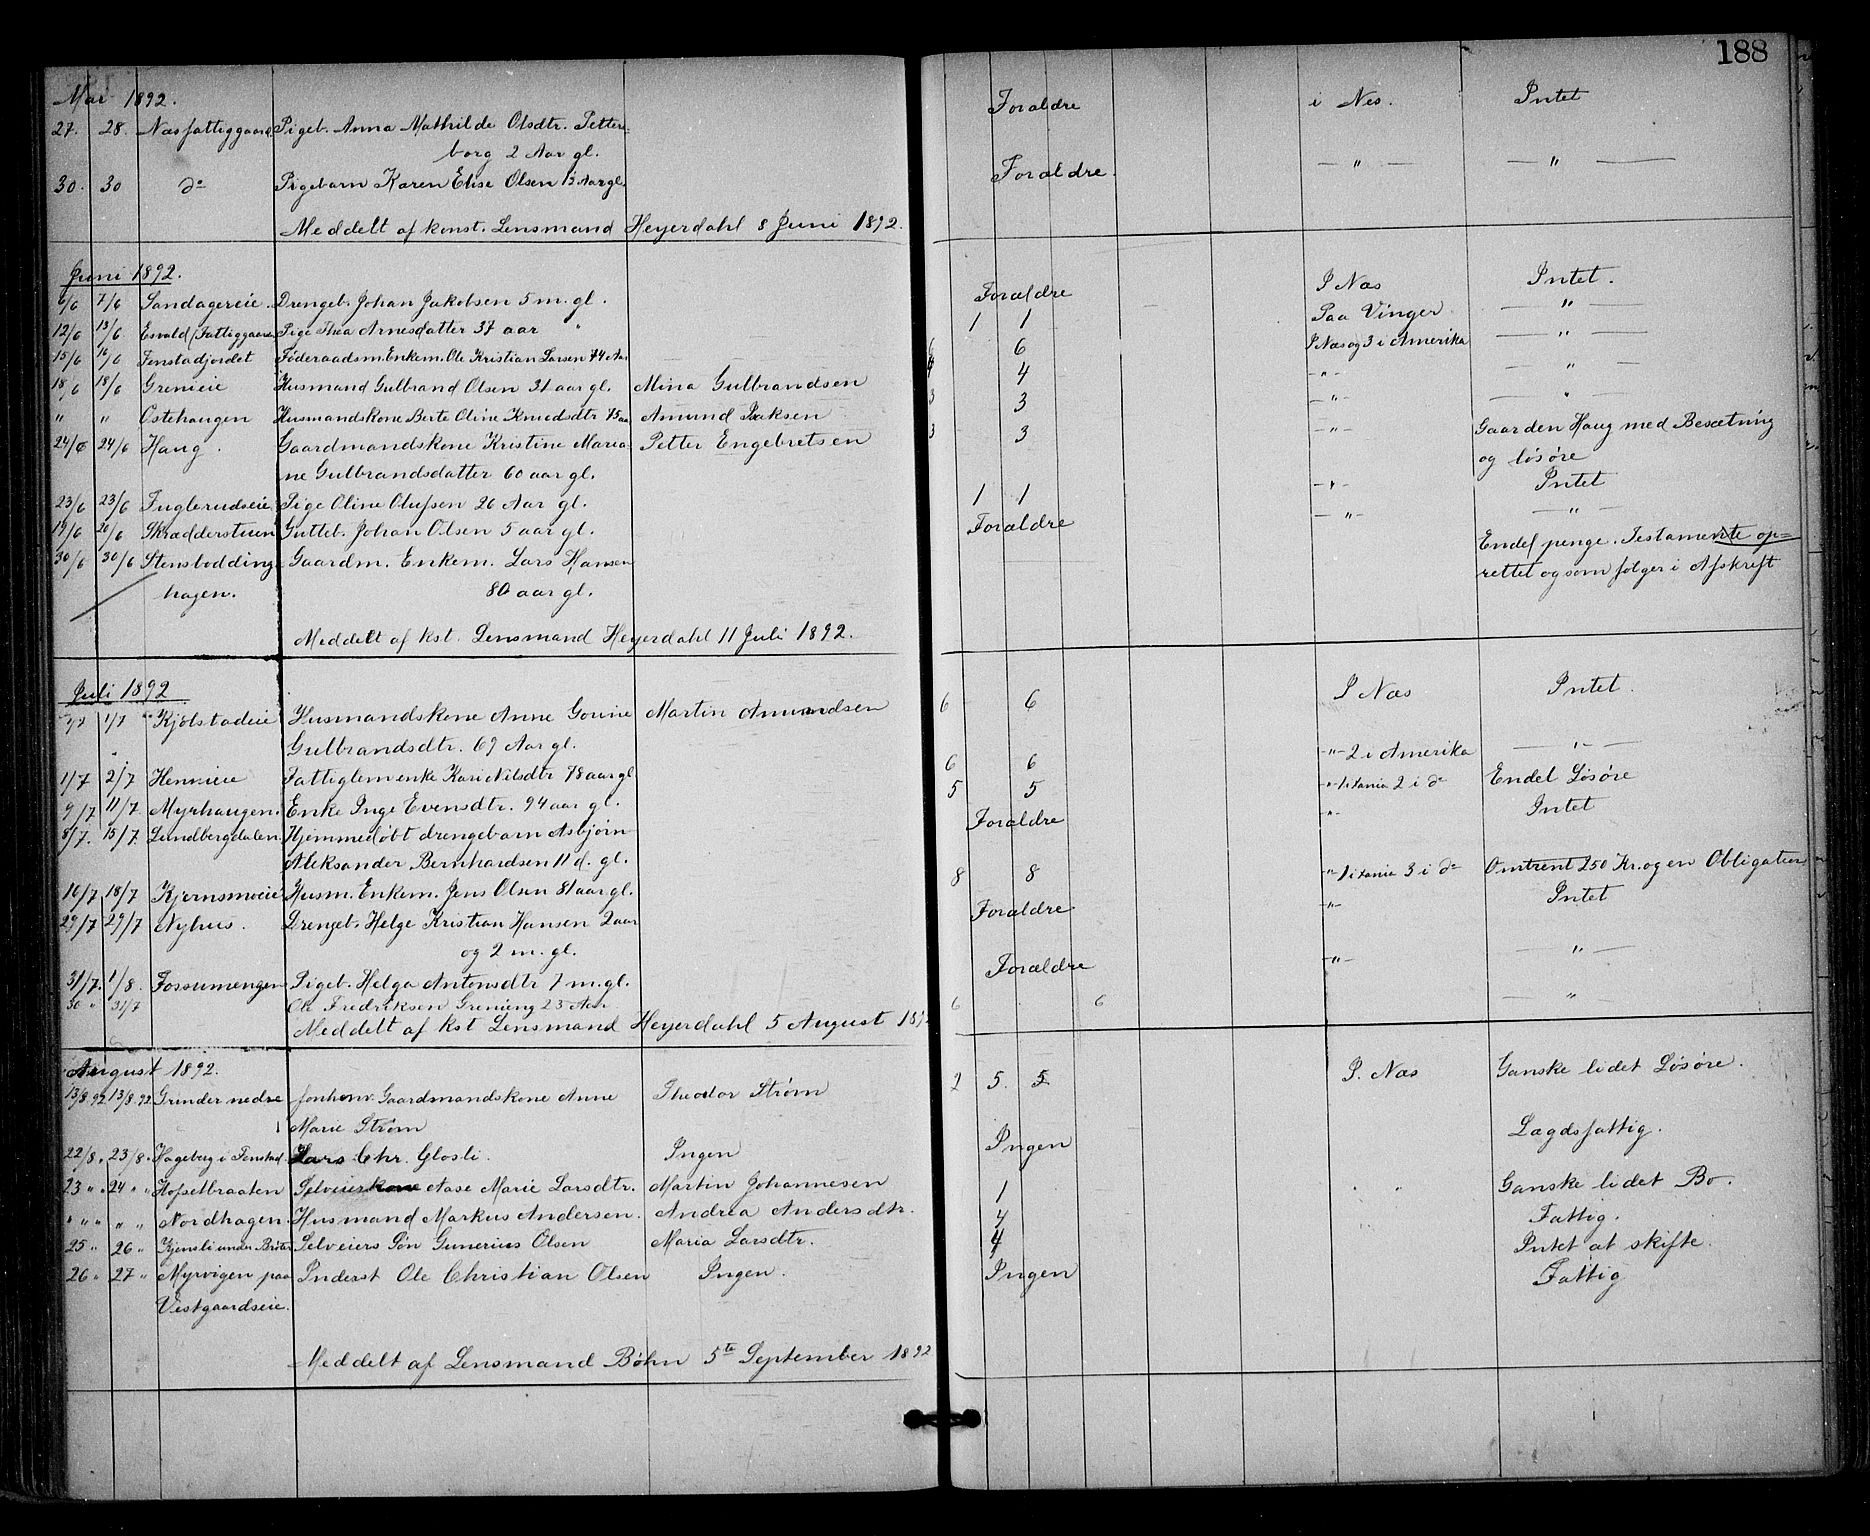 188
Mai 1892.
27. 28. Næsfattiggaard. Pigeb. Anna Mathilde Olsdtr. Petters- Forældre i Nes. Intet
borg 2 Aar gl.
30. 30 do Pigebarn Karen Elise Olsen 15 Aar gl. Forældre. — " — — " —
Meddelt af konst. Lensmand Heyerdahl 8 Juni 1892.
Juni 1892.
6/6 7/6 Sandagereie. Drengeb. Johan Jakobsen 5 m. gl. Forældre I Næs Intet.
12/6 13/6 Esvald (Fattiggaard Pige Thea Arnesdatter 37 aar " 1 1 Paa Vinger — " —
15/6 16/6 Fenstadjordet Føderaadsm. Enkem. Ole Kristian Larsen 74 Aar 6 6 I Næs og 3 i Amerika — " —
18/6 18/6 Grenieie Husmand Gulbrand Olsen 31 aar gl. Mina Gulbrandsen 4 4 - " - — " —
" " Ostehaugen Husmandskone Berte Oline Knudsdtr 75 aar Amund Isaksen 3 3 - " - — " —
24/6 24/6 Haug. Gaardmandskone Kristine Maria- Petter Engebretsen 3 3 - " - Gaarden Haug med Besætning
ne Gulbrandsdatter 60 aar gl. og løsøre
23/6 23/6 Fuglerudseie Pige Oline Olufsen 26 Aar gl. 1 1 - " - Intet
19/6 20/6 Skrædderstuen Gutteb. Johan Olsen 5 aar gl. Forældre - " - — " —
30/6 30/6 Stensbodding- Gaardm. Enkem. Lars Hansen Endel penge. Testamente op-
hagen. 80 aar gl. rettet og som følger i Afskrift
Meddelt af kst. Lensmand Heyerdahl 11 Juli 1892.
Juli 1892
1/7 1/7 Kjølstadeie Husmandskone Anne Gorine Martin Amundsen 6 6 I Næs Intet.
Gulbrandsdtr. 69 Aar gl.
1/7 2/7 Hennieie Fattiglem enke Kari Nilsdtr 78 aar gl 6 6 - " - 2 i Amerika — " —
9/7 11/7 Myrhaugen. Enke Inge Evensdtr. 94 aar gl. 5 5 - " - 1 i tania 2 i do Endel Løsøre
8/7. 15/7 Lundbergdalen Hjemmedøbt drengebarn Asbjørn Forældre " Intet
Aleksander Bernhardsen 11 d. gl.
16/7 18/7 Kjernsmoeie Husm. Enkem. Jens Olsen 81 aar gl. 8 8 - " - 1 i tania 3 i do Omtrent 250 Kr. og en Obligation
29/7 29/7 Nyhus. Drengeb. Helge Kristian Hansen 2 aar Forældre - " - Intet
og 2 m. gl.
31/7. 1/8. Fossumengen Pigeb. Helga Antonsdtr 7 m. gl. Forældre - " - — " —
30 " 31/7 Ole Fredriksen Grening 25 Aar 6 6 — " —
Meddelt af kst Lensmand Heyerdahl 5 August 189
August 1892.
13/8 92 13/8 92 Grinder nedre Gaardmandskone Anne Theodor Strøm 2 5. 5 I. Næs Ganske lidet Løsøre.
Marie Strøm
22/8 " 23/8 " Hageberg i Fenstad. Lars Chr. Glosli. Ingen Ingen Lægdsfattig.
23 " " 24 " " Hofsetbraaten Selveierskone Aase Marie Larsdtr. Martin Johannesen 1 " " Ganske lidet Bo.
" " " " " Nordhagen. Husmand Markus Andersen. Andrea Andersdtr. 4 Fattig.
25 " 26 " Kjensli under Selveiers Søn Gunerius Olsen Maria Larsdtr. 4 Intet at skifte.
26 " 27 " Myrvigen paa Inderst Ole Christian Olsen Ingen. Ingen Fattig
Vestgaardseie.
Meddelt af Lensmand Bøhn 5te September 1892